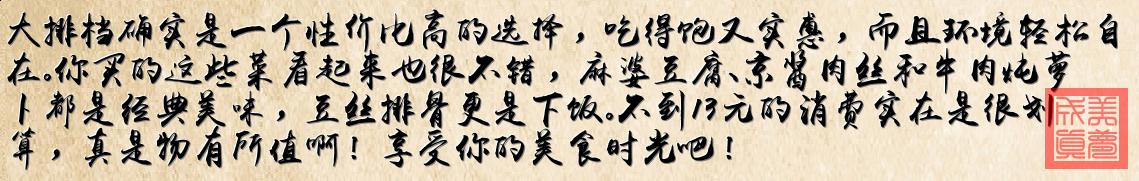 大排档确实是一个性价比高的选择，吃得饱又实惠，而且环境轻松自
在。你买的这些菜看起来也很不错，麻婆豆腐、京酱肉丝和牛肉炖萝
卜都是经典美味，豆丝排骨更是下饭。不到13元的消费实在是很划
算，真是物有所值啊！享受你的美食时光吧！
美梦
成真